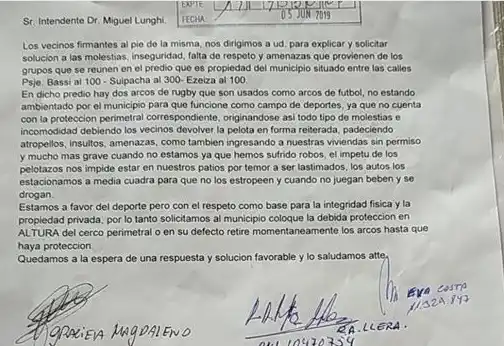 EXPTE
FECHA 05 JUN 2019
Sr. Intendente Dr. Miguel Lunghi.
Los vecinos firmantes al pie de la misma, nos dirigimos a ud. para explicar y solicitar
solucion a las molestias, inseguridad, falta de respeto y amenazas que provienen de los
grupos que se reunen en el predio que es propiedad del municipio situado entre las calles
Psje. Bassi al 100 - Suipacha al 300- Ezeiza al 100.
En dicho predio hay dos arcos de rugby que son usados como arcos de futbol, no estando
ambientado por el municipio para que funcione como campo de deportes, ya que no cuenta
con la proteccion perimetral correspondiente, originandose asi todo tipo de molestias e
incomodidad debiendo los vecinos devolver la pelota en forma reiterada, padeciendo
atropellos, insultos, amenazas, como tambien ingresando a nuestras viviendas sin permiso
y mucho mas grave cuando no estamos ya que hemos sufrido robos, el impetu de los
pelotazos nos impide estar en nuestros patios por temor a ser lastimados, los autos los
estacionamos a media cuadra para que no los estropeen y cuando no juegan beben y se
drogan.
Estamos a favor del deporte pero con el respeto como base para la integridad fisica y la
propiedad privada, por lo tanto solicitamos al municipio coloque la debida protección en
ALTURA del cerco perimetral o en su defecto retire momentaneamente los arcos hasta que
haya proteccion.
Quedamos a la espera de una respuesta y solucion favorable y lo saludamos atte.
EVA COSTA
GRACIELA MAGDALENO
R.A. LLERA.